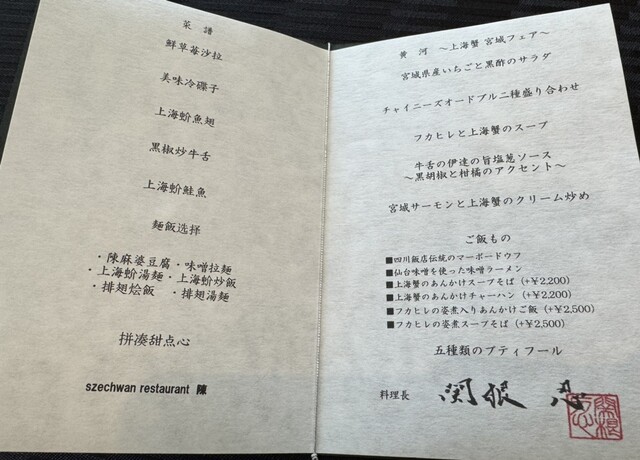 菜 譜
鮮草莓沙拉
美味冷碟子
上海蚧魚翅
黒椒炒牛舌
上海蚧鮭魚
麺飯选择
・陳麻婆豆腐 ・味噌拉麺
・上海蚧湯麺 ・上海蚧炒飯
・排翅烩飯 ・排翅湯麺
拼凑甜点心
szechwan restaurant 陳
黄 河 ～上海蟹 宮城フェア～
宮城県産いちごと黒酢のサラダ
チャイニーズオードブル二種盛り合わせ
フカヒレと上海蟹のスープ
牛舌の伊達の旨塩葱ソース
～黒胡椒と柑橘のアクセント～
宮城サーモンと上海蟹のクリーム炒め
ご飯もの
■四川飯店伝統のマーボードウフ
■仙台味噌を使った味噌ラーメン
■上海蟹のあんかけスープそば (+￥2,200)
■上海蟹のあんかけチャーハン (+￥2,200)
■フカヒレの姿煮入りあんかけご飯 (+￥2,500)
■フカヒレの姿煮スープそば (+￥2,500)
五種類のプティフール
料理長 関根 忍